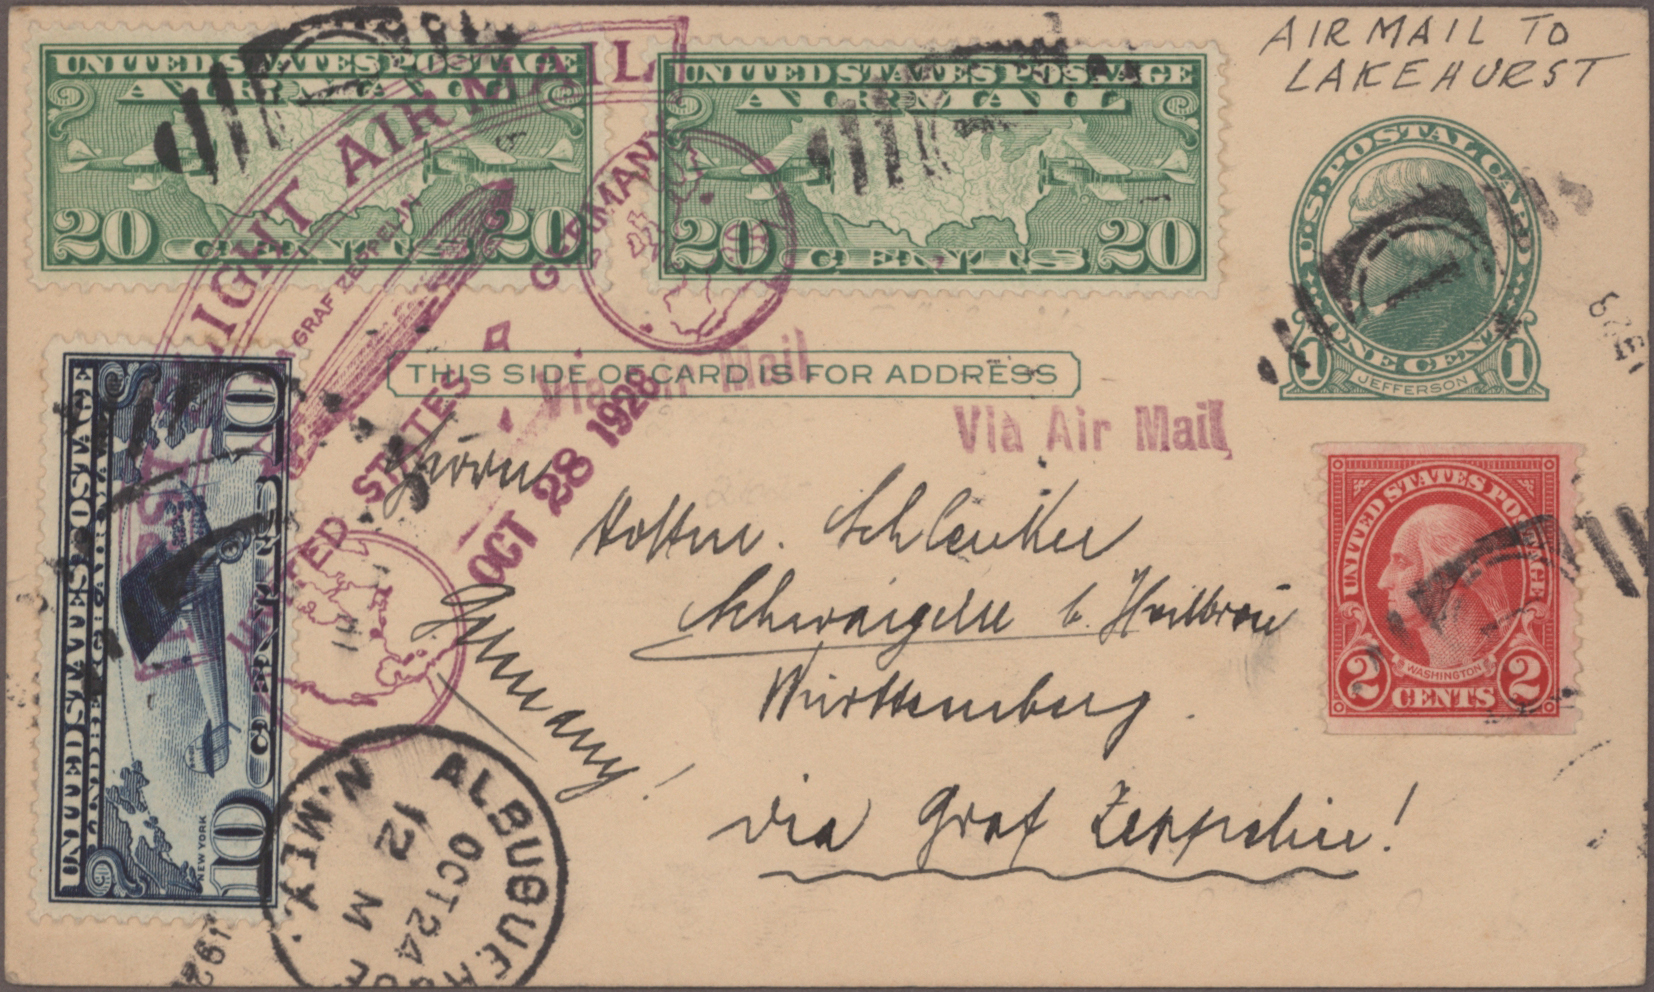 AIR MAIL TO
LAKEHURST
UNITED STATES POSTAGE
AIR MAIL
20 CENTS 20
UNITED STATES POSTAGE
AIR MAIL
20 CENTS 20
U.S. POSTAL CARD
1 ONE CENT 1
JEFFERSON
FLIGHT AIR MAIL
GRAF ZEPPELIN
GERMANY
UNITED STATES
OCT 28 1928
THIS SIDE OF CARD IS FOR ADDRESS
Via Air Mail
Via Air Mail
UNITED STATES POSTAGE
LINDBERGH AIR MAIL
10 CENTS 10
NEW YORK
UNITED STATES POSTAGE
WASHINGTON
2 CENTS 2
Herrn
Schlenker
b. Heilbronn
Württemberg.
Germany!
via Graf Zeppelin!
ALBUQUERQUE
N. MEX.
OCT 24
12 M